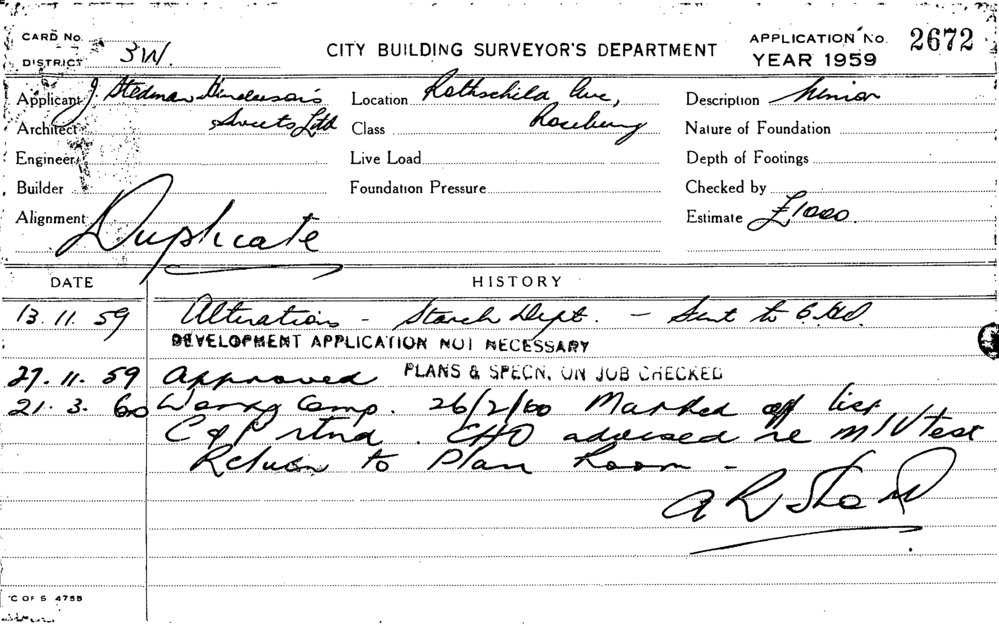 CARD No.
DISTRICT 3W.
CITY BUILDING SURVEYOR'S DEPARTMENT
APPLICATION No. 2672
YEAR 1959
Applicant J. Stedman Henderson's
Sweets Ltd
Architect
Engineer
Builder
Alignment
Duplicate
Location Rothschild Ave,
Rosebery
Class
Live Load
Foundation Pressure
Description Minor
Nature of Foundation
Depth of Footings
Checked by
Estimate £1000.
DATE HISTORY
13.11.59 Alterations - Starch Dept. - Sent to
DEVELOPMENT APPLICATION NOT NECESSARY
27.11.59 Approved PLANS & SPECN. ON JOB CHECKED
21.3.60 Comp. 26/2/60 Marked off list
rtnd. CHO advised re M/V test
Return to Plan Room -
C OF S 475B